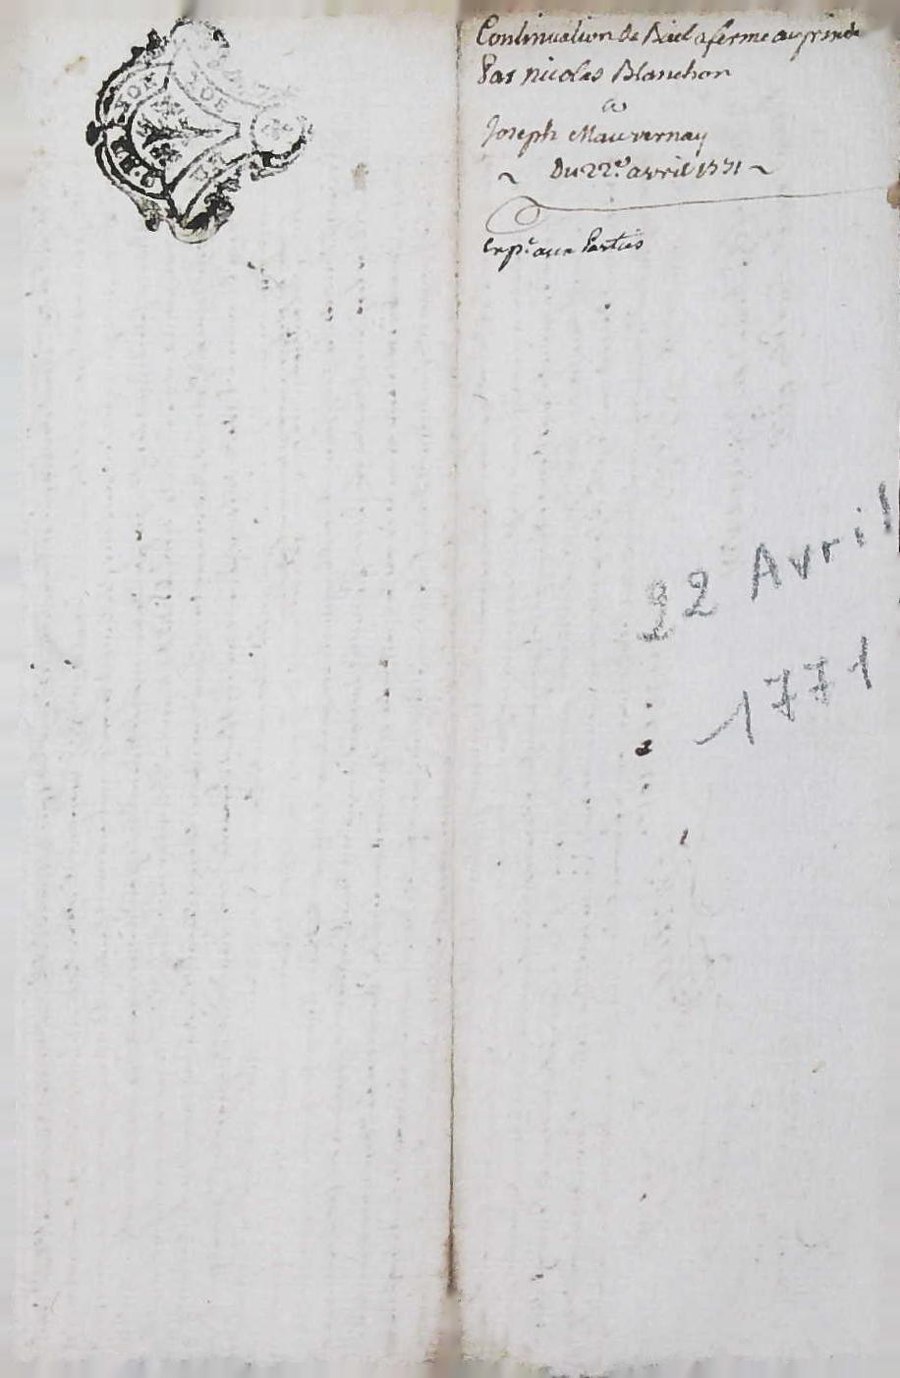 Continuation de Bail a ferme a
Par nicolas Blanchon
a
Joseph Mauvernay
~ Du 22e. avril 1771 ~
exp.e aux Parties
22 Avril
1771